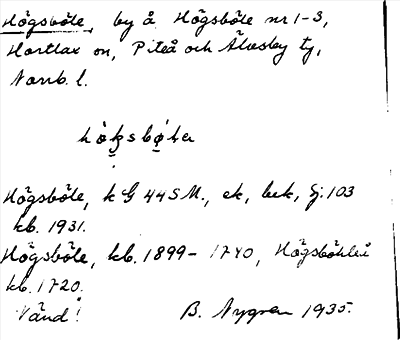 Högsböle, by å Högsböle nr 1-3,
Hortlax sn, Piteå och Älvsby tg,
Norrb. l.
Högsböle, k G 44 S M., ek, bek, j: 103
kb. 1931.
Högsböle, kb. 1899- 1740, Högsböhle
kb. 1720.
Vänd! B. Nygren 1935.